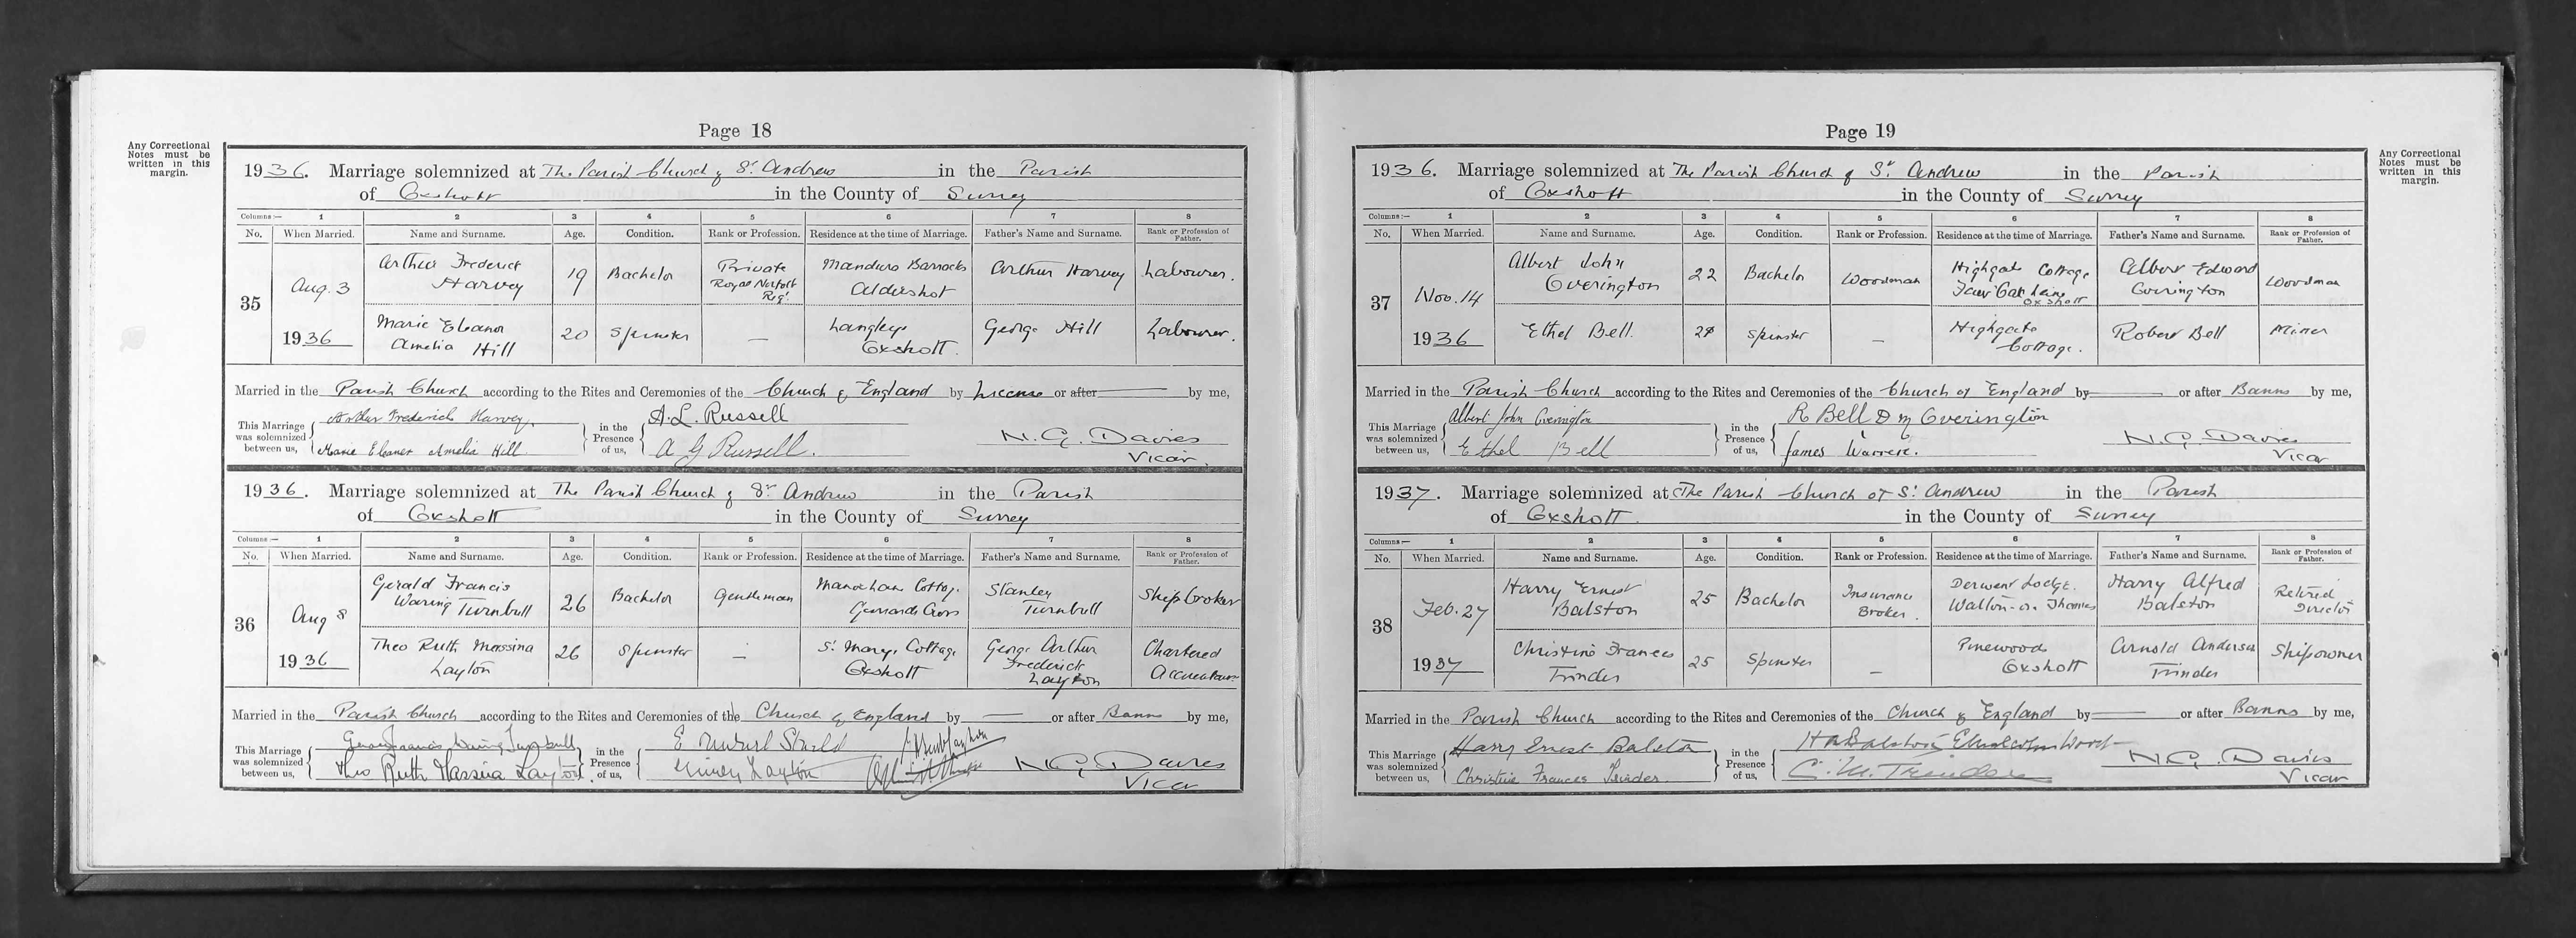 Page 18
Any Correctional
Notes must be
written in this
margin.
1936. Marriage solemnized at The Parish Church of St. Andrew in the Parish
of Oxshott in the County of Surrey
Columns:— 1 2 3 4 5 6 7 8
No. When Married. Name and Surname. Age. Condition. Rank or Profession. Residence at the time of Marriage. Father's Name and Surname. Rank or Profession of Father.
35 Aug. 3 1936
Arthur Frederick Harvey 19 Bachelor Private Royal Norfolk Regt. Mandura Barracks Aldershot Arthur Harvey Labourer.
Marie Eleanor Amelia Hill 20 Spinster — Langleys Oxshott. George Hill Labourer.
Married in the Parish Church according to the Rites and Ceremonies of the Church of England by Licence or after by me,
This Marriage was solemnized between us, Arthur Frederick Harvey. Marie Eleanor Amelia Hill in the Presence of us, A. L. Russell A G Russell. N. G. Davies Vicar.
1936. Marriage solemnized at The Parish Church of St. Andrew in the Parish
of Oxshott in the County of Surrey
Columns:— 1 2 3 4 5 6 7 8
No. When Married. Name and Surname. Age. Condition. Rank or Profession. Residence at the time of Marriage. Father's Name and Surname. Rank or Profession of Father.
36 Aug 8 1936
Gerald Francis Waring Turnbull 26 Bachelor Gentleman Cottage Gerrards Cross Stanley Turnbull Shipbroker
Theo Ruth Massina Layton 26 Spinster — St. Mary's Cottage Oxshott George Arthur Frederick Layton Chartered Accountant
Married in the Parish Church according to the Rites and Ceremonies of the Church of England by — or after Banns by me,
This Marriage was solemnized between us, Francis Waring Turnbull Theo Ruth Massina Layton. in the Presence of us, E. Layton N. G. Davies Vicar
Page 19
Any Correctional
Notes must be
written in this
margin.
1936. Marriage solemnized at The Parish Church of St. Andrew in the Parish
of Oxshott in the County of Surrey
Columns:— 1 2 3 4 5 6 7 8
No. When Married. Name and Surname. Age. Condition. Rank or Profession. Residence at the time of Marriage. Father's Name and Surname. Rank or Profession of Father.
37 Nov. 14 1936
Albert John Overington 22 Bachelor Woodman Highgate Cottage Fair Oak Lane Oxshott Albert Edward Overington Woodman
Ethel Bell. Spinster — Highgate Cottage. Robert Bell Miner
Married in the Parish Church according to the Rites and Ceremonies of the Church of England by — or after Banns by me,
This Marriage was solemnized between us, Albert John Overington Ethel Bell in the Presence of us, R Bell D M Overington James Warren. N. G. Davies Vicar
1937. Marriage solemnized at The Parish Church of St. Andrew in the Parish
of Oxshott in the County of Surrey
Columns:— 1 2 3 4 5 6 7 8
No. When Married. Name and Surname. Age. Condition. Rank or Profession. Residence at the time of Marriage. Father's Name and Surname. Rank or Profession of Father.
38 Feb. 27 1937
Harry Ernest Balston 25 Bachelor Insurance Broker. Derwent Lodge. Walton-on-Thames Harry Alfred Balston Retired Director
Christine Frances Trinder 25 Spinster — Pinewood Oxshott Arnold Anderson Trinder Shipowner
Married in the Parish Church according to the Rites and Ceremonies of the Church of England by — or after Banns by me,
This Marriage was solemnized between us, Harry Ernest Balston Christine Frances Trinder. in the Presence of us, H A Balston C. M. Trinder N. G. Davies Vicar